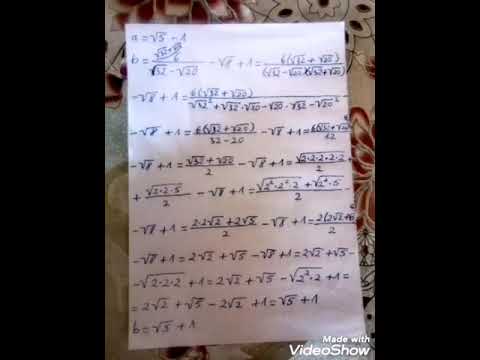 a = √5 - 1
b = 6/(√32 - √20) - √8 + 1 = 6(√32 + √20)/((√32 - √20)(√32 + √20))
- √8 + 1 = 6(√32 + √20)/(√32² + √32·√20 - √20·√32 - √20²)
- √8 + 1 = 6(√32 + √20)/(32 - 20) - √8 + 1 = 6(√32 + √20)/12
- √8 + 1 = (√32 + √20)/2 - √8 + 1 = √2·2·2·2·2/2
+ √2·2·5/2 - √8 + 1 = (√2²·2²·2 + √2²·5)/2
- √8 + 1 = (2·2√2 + 2√5)/2 - √8 + 1 = 2(2√2 + √5)/2
- √8 + 1 = 2√2 + √5 - √8 + 1 = 2√2 + √5 -
- √2·2·2 + 1 = 2√2 + √5 - √2²·2 + 1 =
= 2√2 + √5 - 2√2 + 1 = √5 + 1
b = √5 + 1
Made with
VideoShow